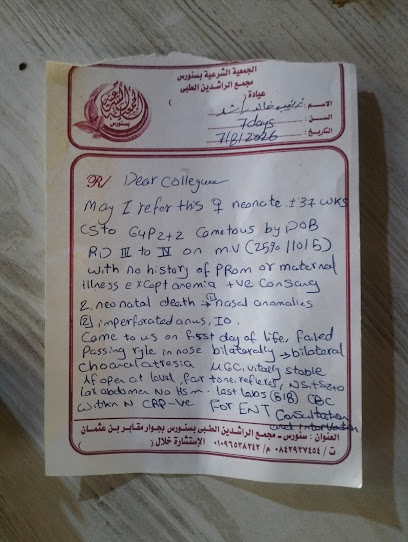 الجمعية الشرعية بسنورس
مجمع الراشدين الطبى
عيادة (                    )
الاسم: زينب خالد راشد
السن: 7days
التاريخ: 7/8/2026
الجمعية الشرعية
بسنورس
R/ Dear Colleguee
May I refer this ♀ neonate ± 37 wks
CS to G4P2+2 Come to us by DOB
RD III to IV on m.v (25%/10/5)
with no history of PRom or maternal
illness except anemia +ve Consang
2 neonatal death → ① nasal anomalies
② imperforated anus, IO.
Came to us on first day of life, failed
Passing ryle in nose bilaterally → bilateral
choanal atresia UGC, vitally stable
Af open at level, fair tone, reflexes, NS1+S2+0
lax abdomen No HSm - last labs (8/8) CBC
within N CRP -ve For ENT Consultation
and intervention
العنوان: سنورس - مجمع الراشدين الطبى بسنورس بجوار مقابر بن عثمان
ت / ٠٨٤٢٩٣٧٤٥٤ م / ٠١٠٩٦٥٣٨٢٤٢ الإستشارة خلال (